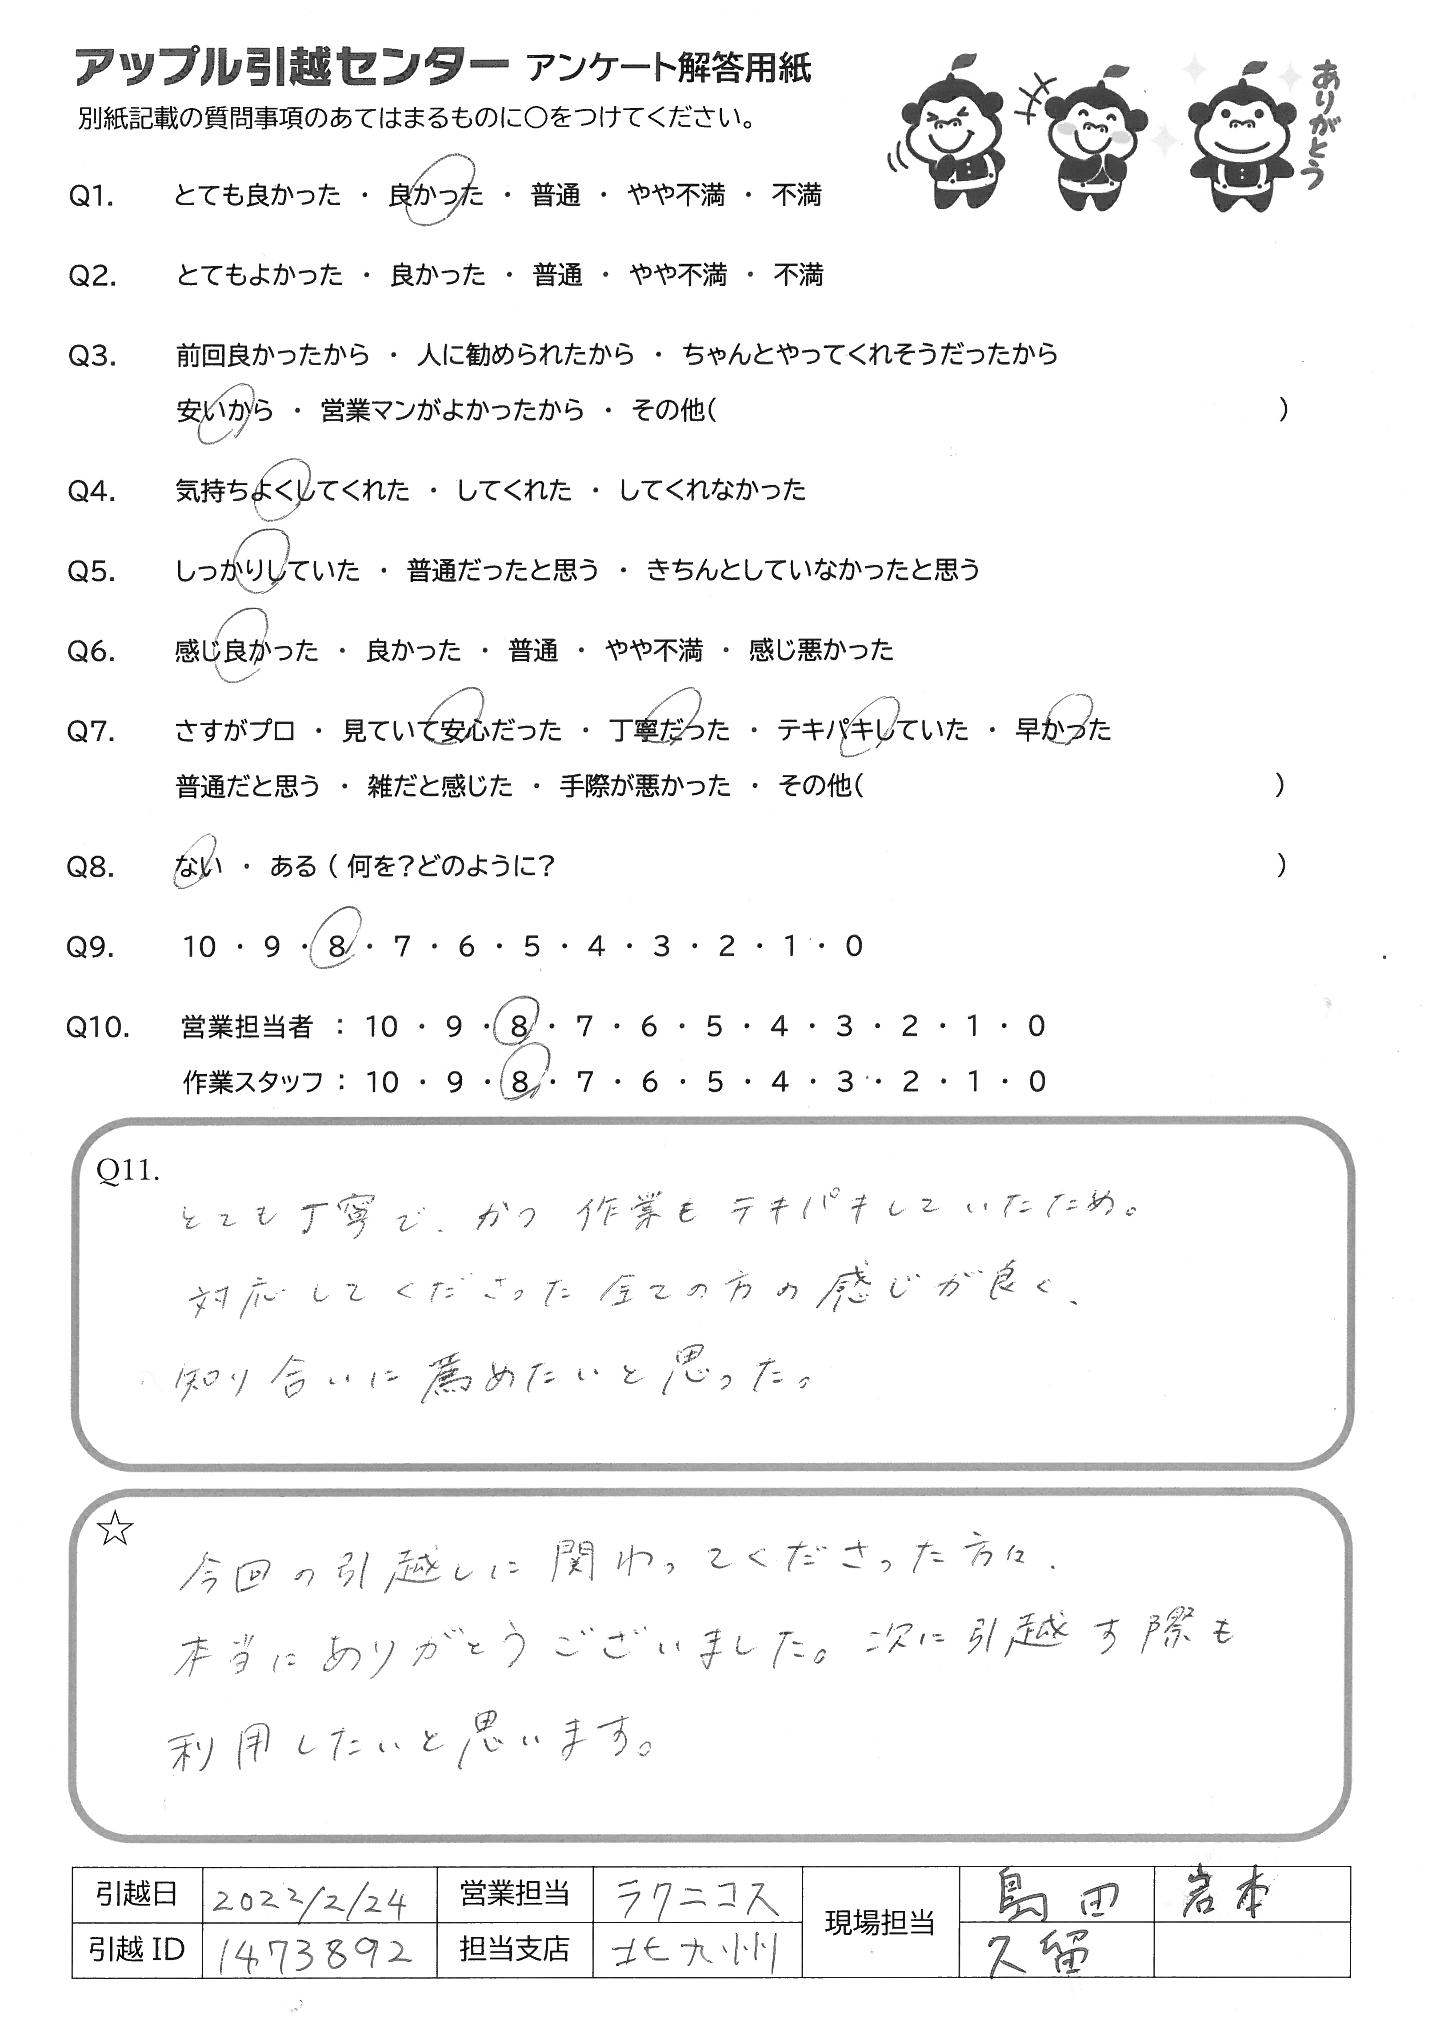 アップル引越センター アンケート解答用紙
ありがとう
別紙記載の質問事項のあてはまるものに〇をつけてください。
Q1. とても良かった ・ 良かった ・ 普通 ・ やや不満 ・ 不満
Q2. とてもよかった ・ 良かった ・ 普通 ・ やや不満 ・ 不満
Q3. 前回良かったから ・ 人に勧められたから ・ ちゃんとやってくれそうだったから
安いから ・ 営業マンがよかったから ・ その他( )
Q4. 気持ちよくしてくれた ・ してくれた ・ してくれなかった
Q5. しっかりしていた ・ 普通だったと思う ・ きちんとしていなかったと思う
Q6. 感じ良かった ・ 良かった ・ 普通 ・ やや不満 ・ 感じ悪かった
Q7. さすがプロ ・ 見ていて安心だった ・ 丁寧だった ・ テキパキしていた ・ 早かった
普通だと思う ・ 雑だと感じた ・ 手際が悪かった ・ その他( )
Q8. ない ・ ある ( 何を?どのように? )
Q9. 10 ・ 9 ・ 8 ・ 7 ・ 6 ・ 5 ・ 4 ・ 3 ・ 2 ・ 1 ・ 0
Q10. 営業担当者 : 10 ・ 9 ・ 8 ・ 7 ・ 6 ・ 5 ・ 4 ・ 3 ・ 2 ・ 1 ・ 0
作業スタッフ : 10 ・ 9 ・ 8 ・ 7 ・ 6 ・ 5 ・ 4 ・ 3 ・ 2 ・ 1 ・ 0
Q11.
とても丁寧で、かつ 作業も テキパキしていたため。
対応してくださった 全ての方の感じが良く、
知り合いに薦めたいと思った。
☆
今回の引越しに関わってくださった方々、
本当にありがとうございました。次に引越す際も
利用したいと思います。
引越日 2022/2/24 営業担当 ラクニコス 現場担当 島田 岩本
引越ID 1473892 担当支店 北九州 久留